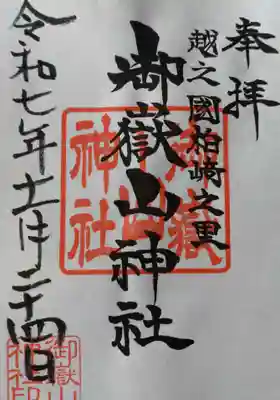 奉拝
越之國柏崎之里
御嶽山神社
令和七年十一月二十四日
御嶽山神社
御嶽山神社印